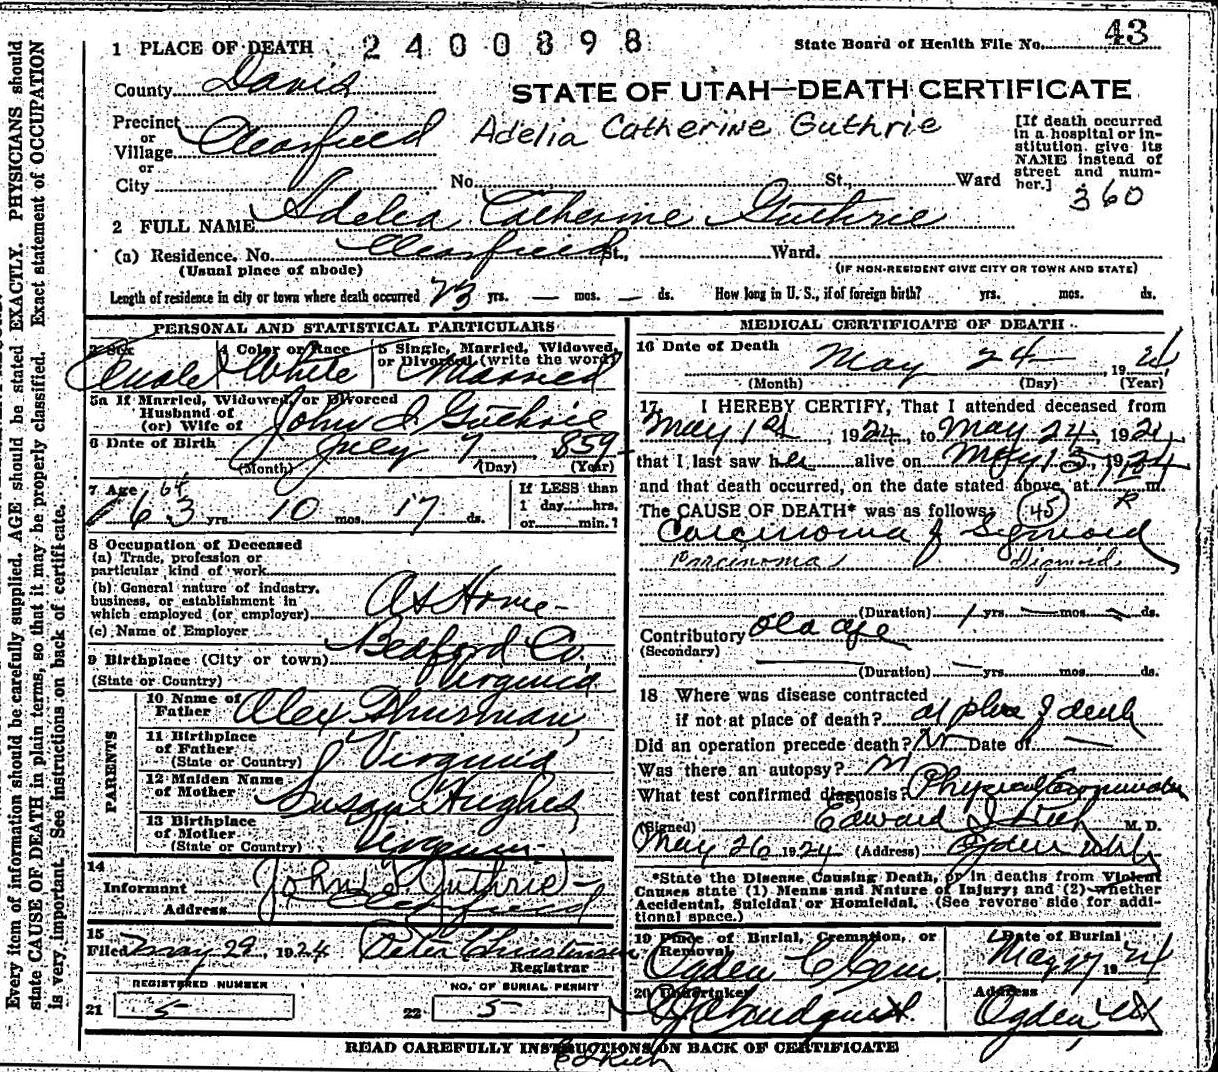 1 PLACE OF DEATH 2400898
State Board of Health File No. 43
County Davis
STATE OF UTAH—DEATH CERTIFICATE
Precinct
or
Village Clearfield
Adelia Catherine Guthrie
[If death occurred
in a hospital or in-
stitution. give its
NAME instead of
street and num-
ber.]
360
or
City No. St., Ward
2 FULL NAME Adelia Catherine Guthrie
(a) Residence. No. Clearfield St., Ward.
(Usual place of abode) (IF NON-RESIDENT GIVE CITY OR TOWN AND STATE)
Length of residence in city or town where death occurred 23 yrs. — mos. — ds. How long in U. S., if of foreign birth? yrs. mos. ds.
PERSONAL AND STATISTICAL PARTICULARS
3 Sex 4 Color or Race 5 Single, Married, Widowed,
or Divorced (write the word)
White Married
5a If Married, Widowed, or Divorced
Husband of
(or) Wife of John I Guthrie
6 Date of Birth July 7 1859
(Month) (Day) (Year)
7 Age 64
63 yrs. 10 mos. 17 ds.
If LESS than
1 day hrs.
or min.?
8 Occupation of Deceased
(a) Trade, profession or
particular kind of work
(b) General nature of industry.
business, or establishment in
which employed (or employer) At Home -
(c) Name of Employer
9 Birthplace (City or town) Beaford Co.
(State or Country) Virginia
PARENTS
10 Name of
Father Alex Thurman
11 Birthplace
of Father
(State or Country) Virginia
12 Maiden Name
of Mother Susan Hughes
13 Birthplace
of Mother
(State or Country) Virginia
14
Informant John I. Guthrie
Address Clearfield
15
Filed May 29, 1924 Peter Christensen
Registrar
REGISTERED NUMBER NO. OF BURIAL PERMIT
21 5 22 5
MEDICAL CERTIFICATE OF DEATH
16 Date of Death May 24 1924
(Month) (Day) (Year)
17. I HEREBY CERTIFY, That I attended deceased from
May 1st, 1924, to May 24, 1924
that I last saw her alive on May 15, 1924
and that death occurred, on the date stated above, at m.
The CAUSE OF DEATH* was as follows: 45
Carcinoma of Sigmoid
Carcinoma, Sigmoid.
(Duration) 1 yrs. — mos. — ds.
Contributory Old age
(Secondary)
(Duration) — yrs. mos. ds.
18 Where was disease contracted
if not at place of death? at place of death
Did an operation precede death? No Date of —
Was there an autopsy? No
What test confirmed diagnosis? Physical Examination
(Signed) Edward I Rich M. D.
May 26 1924 (Address) Ogden Utah
*State the Disease Causing Death, or in deaths from Violent
Causes state (1) Means and Nature of Injury; and (2) whether
Accidental, Suicidal or Homicidal. (See reverse side for addi-
tional space.)
19 Place of Burial, Cremation, or
Removal Date of Burial
Ogden C Cem. May 27 1924
20 Undertaker Address
Lindquist Ogden, Ut
READ CAREFULLY INSTRUCTIONS ON BACK OF CERTIFICATE
EI Rich
Every item of information should be carefully supplied. AGE should be stated EXACTLY. PHYSICIANS should
state CAUSE OF DEATH in plain terms, so that it may be properly classified. Exact statement of OCCUPATION
is very important. See instructions on back of certificate.